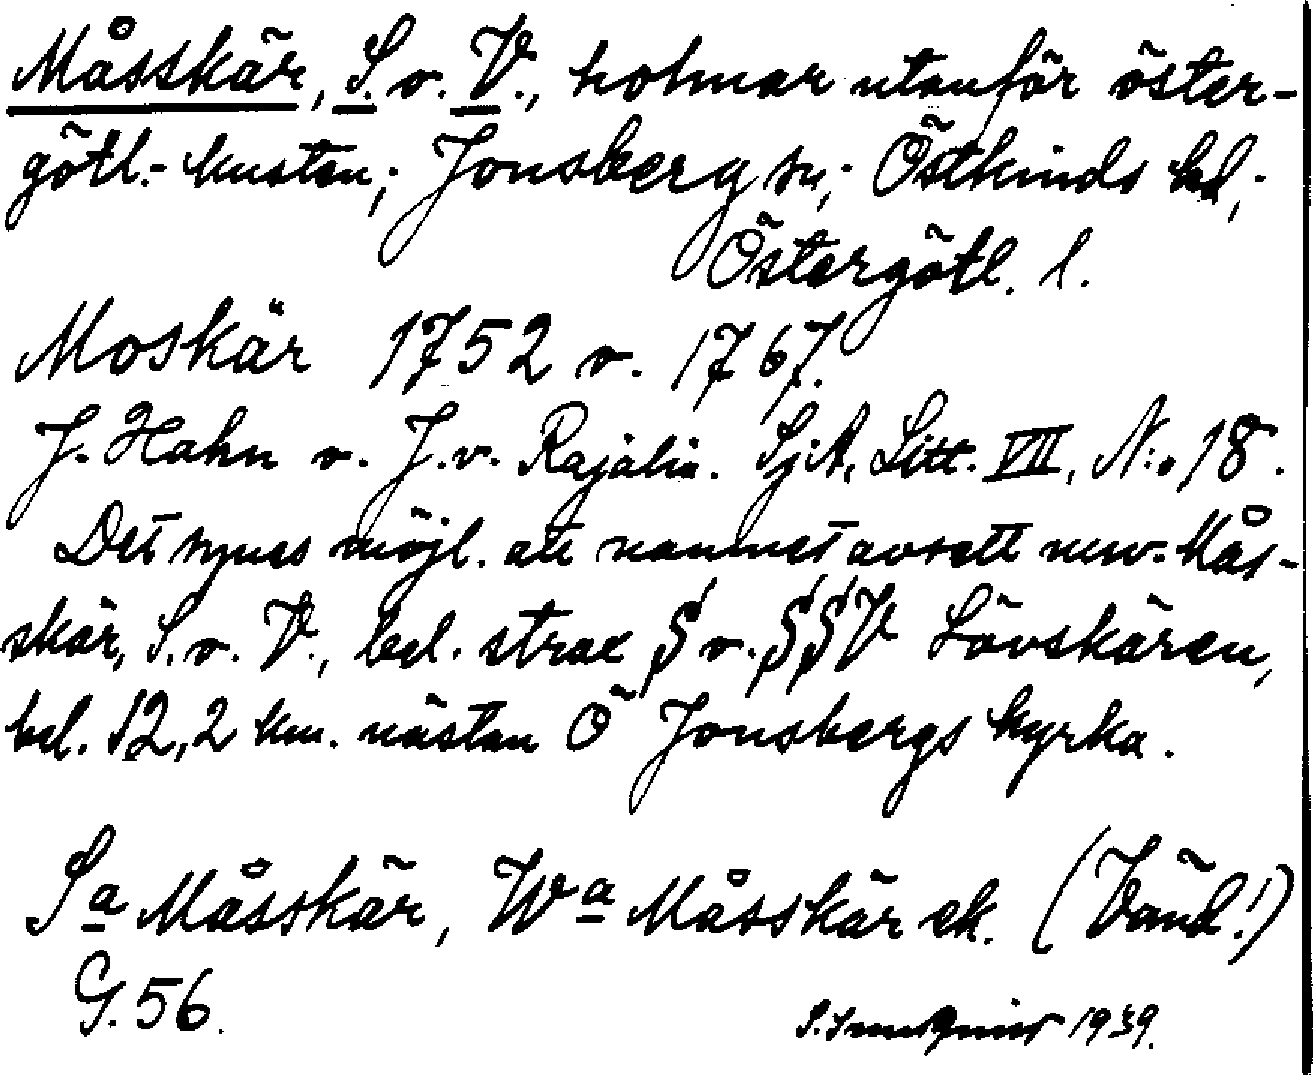 Måsskär, S. o. V., holmar utanför öster-
götl.- kusten; Jonsberg sn; Östkinds hd;
Östergötl. l.
Moskär 1752 o. 1767.
J. Hahn o. J. v. Rajalin. SjA, Litt. VII, N:o 18.
Det synes möjl. att namnet avsett nuv. Mås-
skär, S. o. V., bel. strax S o. SSV Lövskären,
bel. 12,2 km. nästan Ö Jonsbergs kyrka.
Sa Måsskär, Wa Måsskär ek. (Vänd!)
G. 56.
1939.